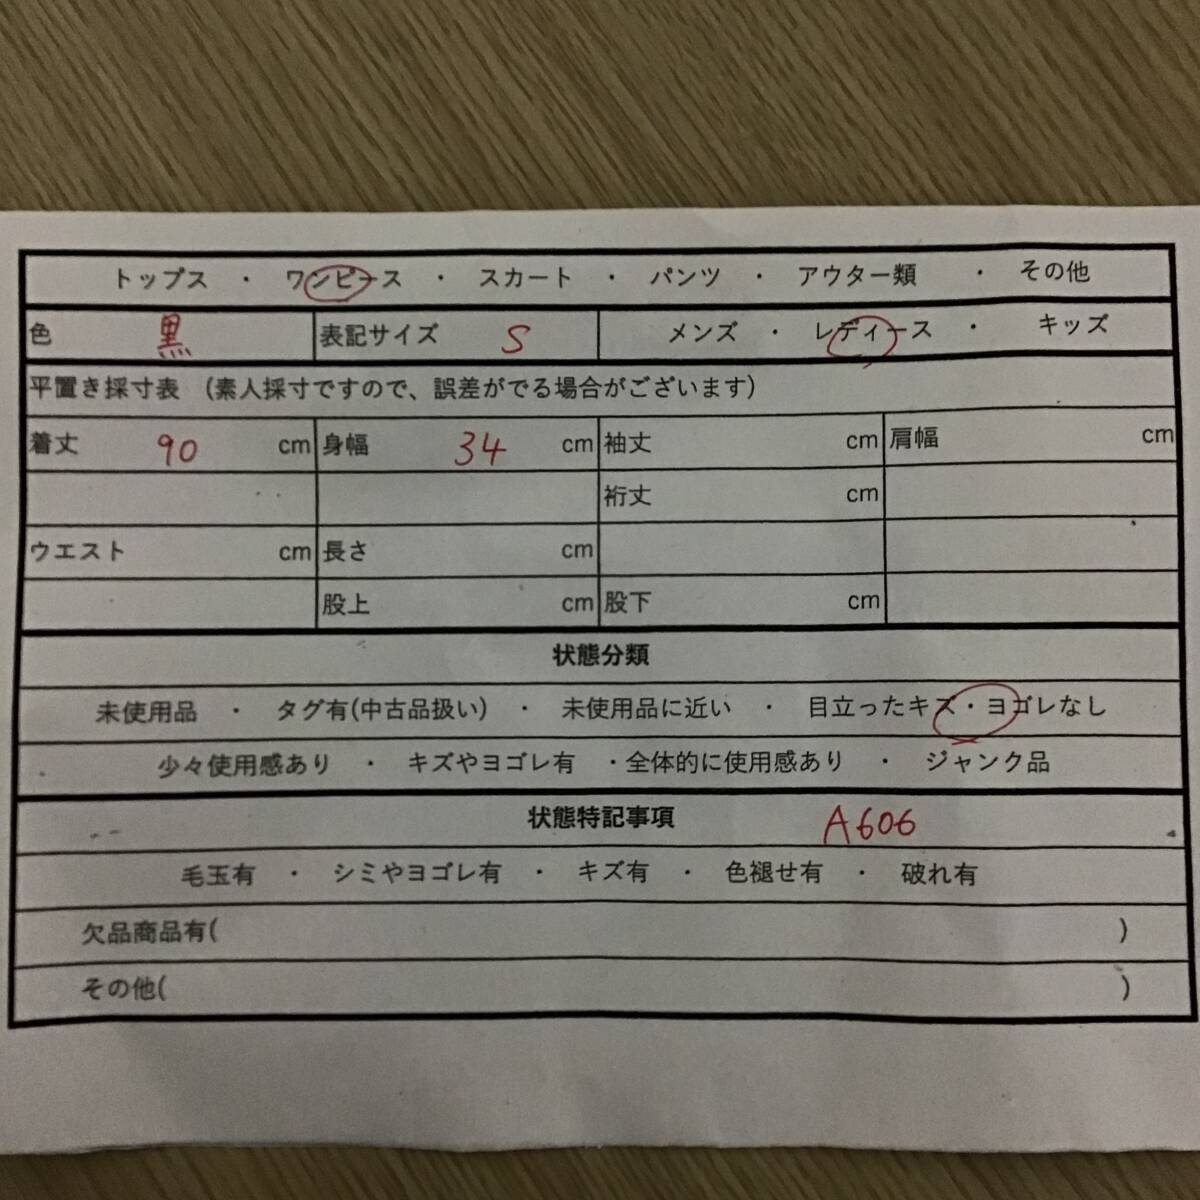 トップス ・ ワンピース ・ スカート ・ パンツ ・ アウター類 ・ その他
色 黒 表記サイズ S メンズ ・ レディース ・ キッズ
平置き採寸表 (素人採寸ですので、誤差がでる場合がございます)
着丈 90 cm 身幅 34 cm 袖丈 cm 肩幅 cm
裄丈 cm
ウエスト cm 長さ cm
股上 cm 股下 cm
状態分類
未使用品 ・ タグ有(中古品扱い) ・ 未使用品に近い ・ 目立ったキズ・ヨゴレなし
少々使用感あり ・ キズやヨゴレ有 ・全体的に使用感あり ・ ジャンク品
状態特記事項 A606
毛玉有 ・ シミやヨゴレ有 ・ キズ有 ・ 色褪せ有 ・ 破れ有
欠品商品有( )
その他( )